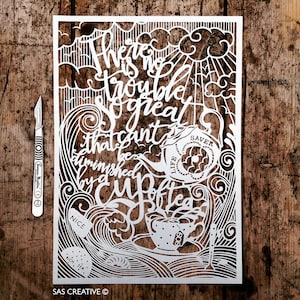 There
is no
trouble
so great
that can't
be
diminished
by a
cup of tea
NICE
SAS CREATIVE ©